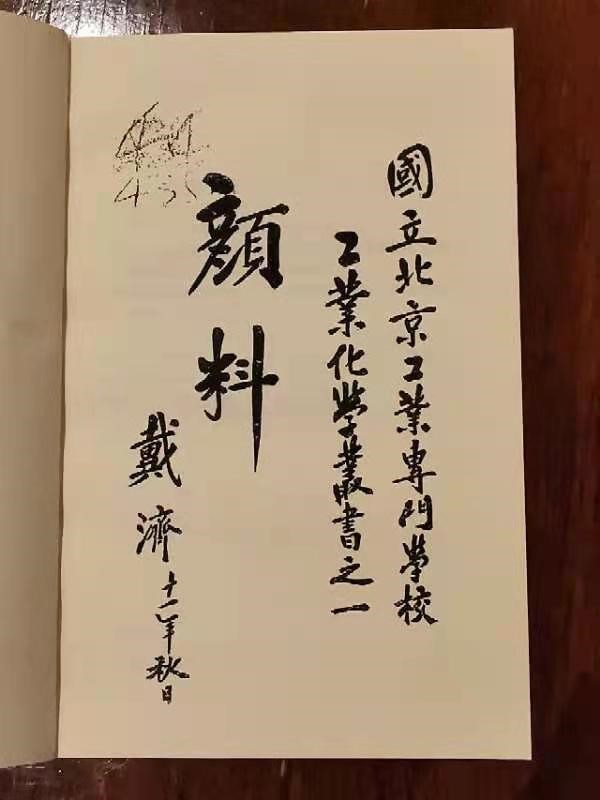 國立北京工業專門學校
工業化學叢書之一
顔料
戴濟
十一年秋日